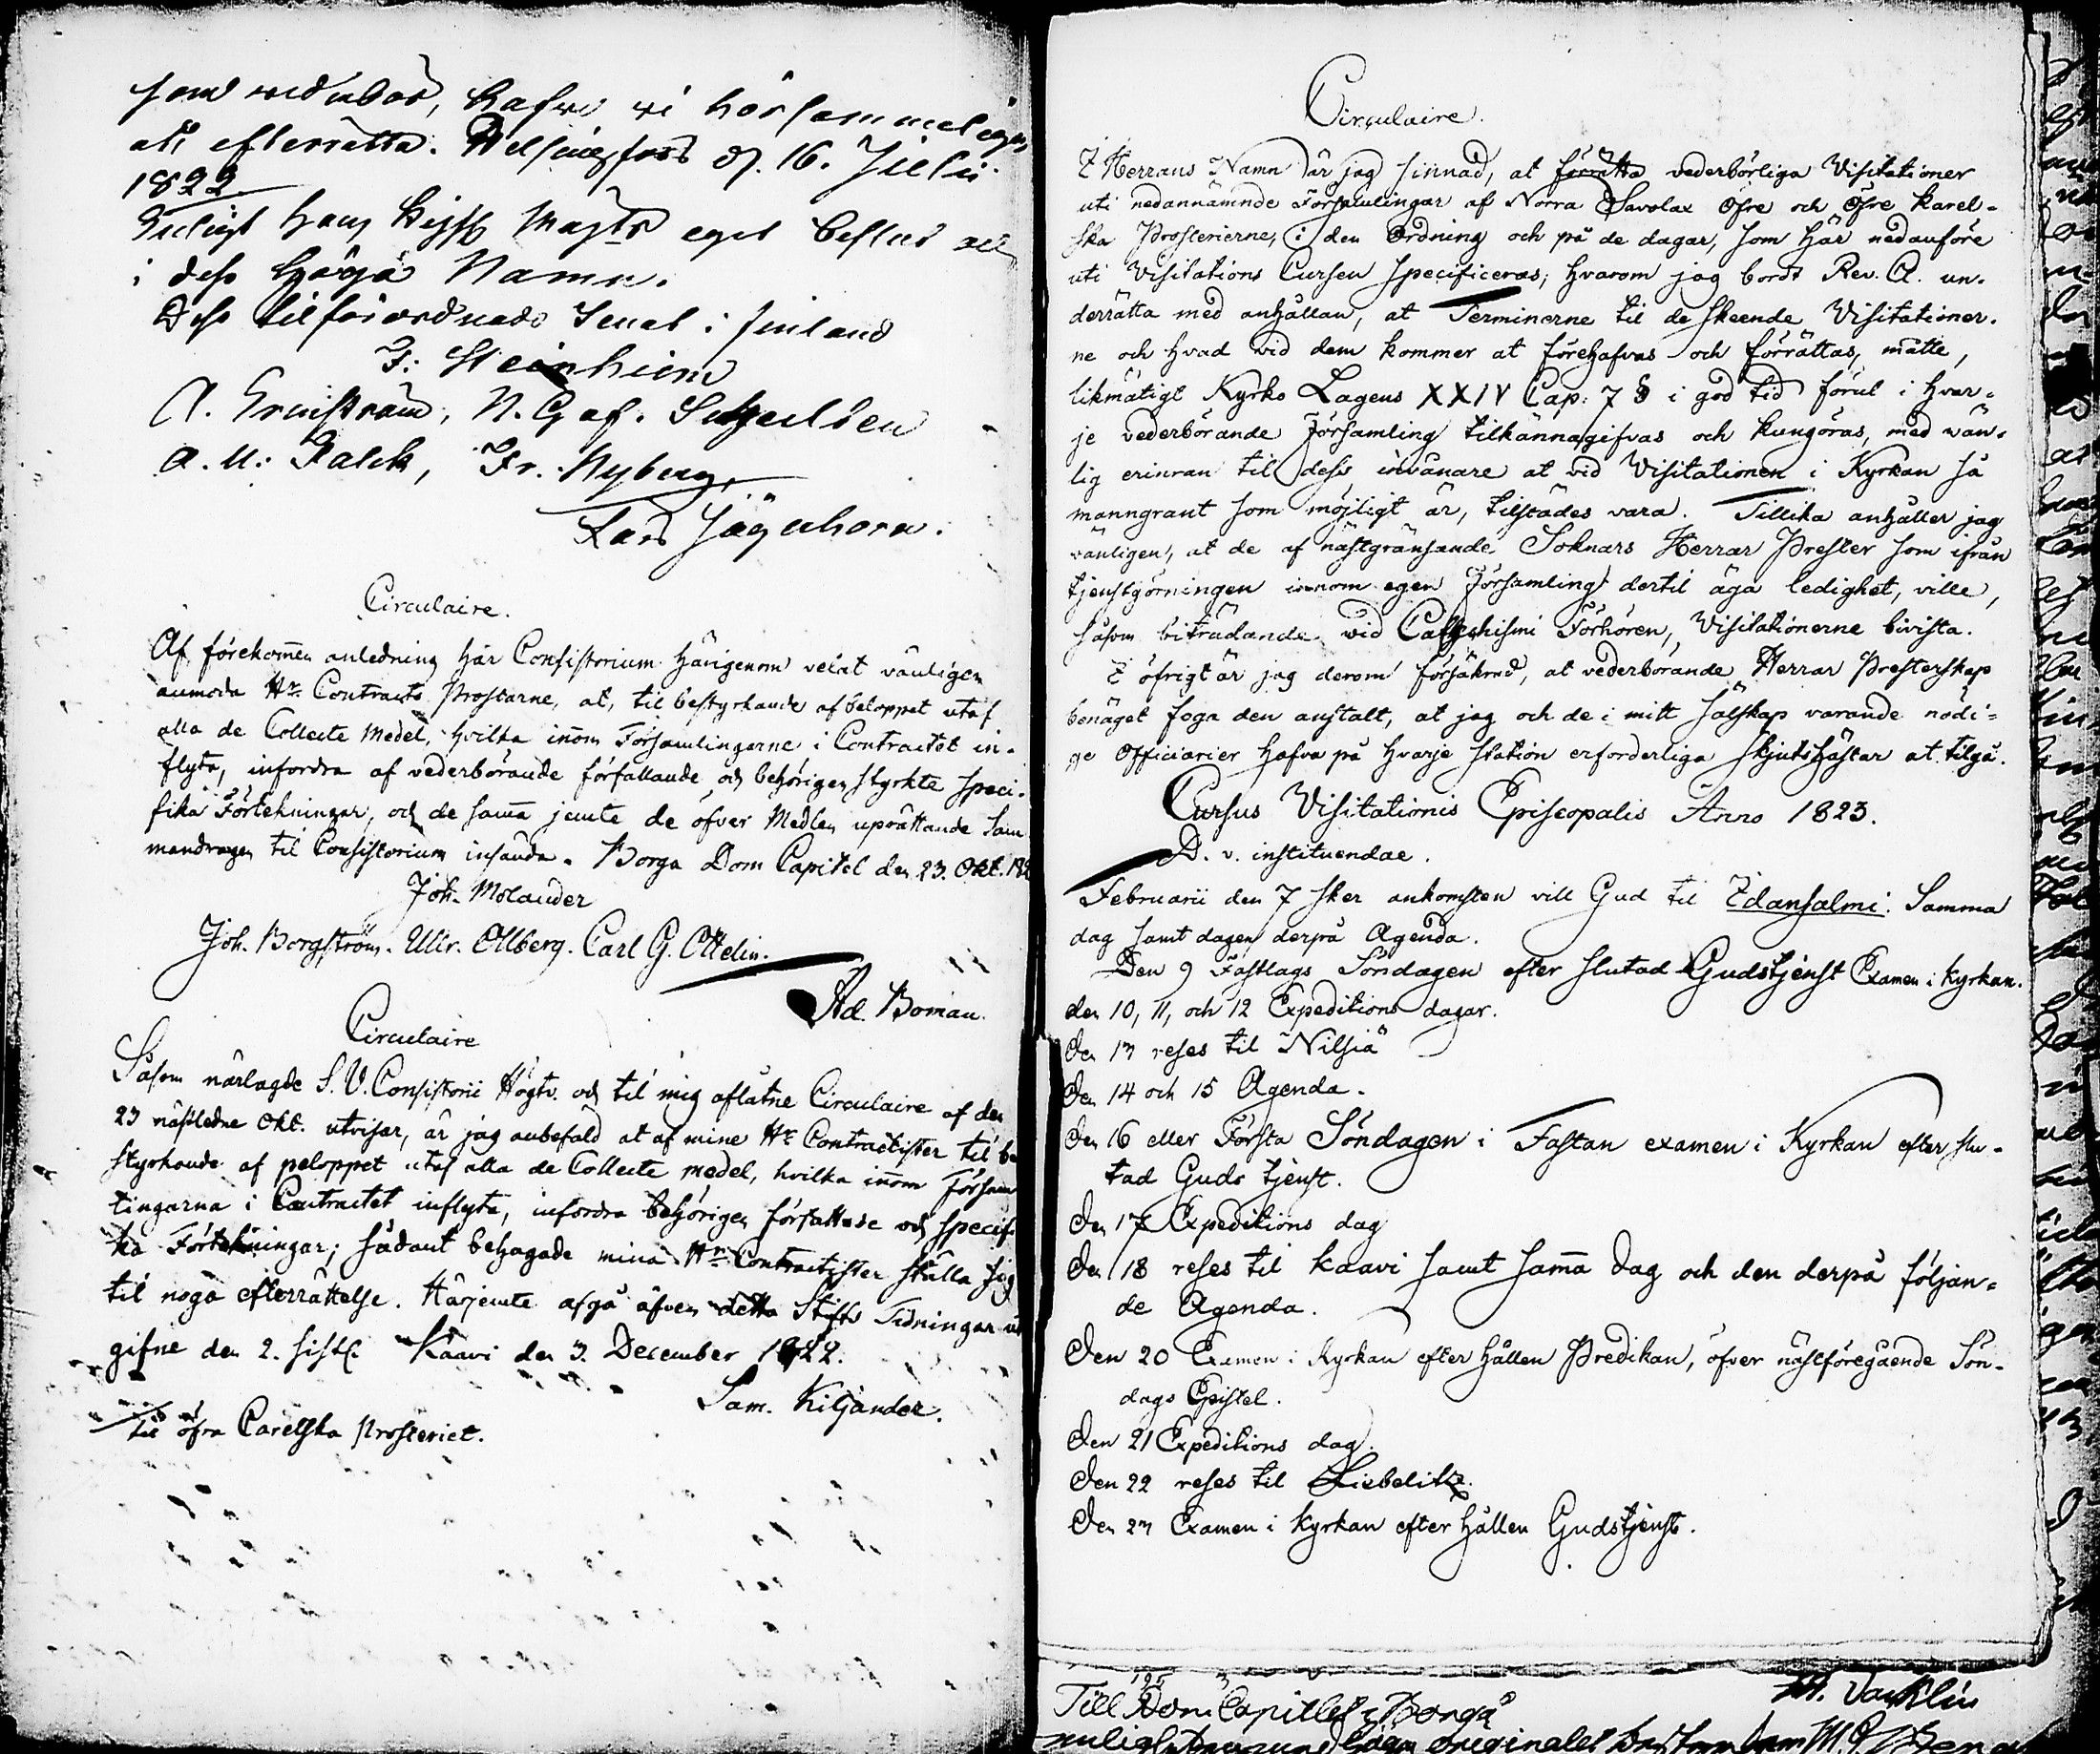 som vederbör, hafve vi hörsammeligen
att efterrätta. Helsingfors d. 16. Julii
1822
Enligt Hans Kejsl Majts eget beslut och
i dess höga Namn.
Dess tilförordnade Senat i finland
F: Steinheim
A. Ernström, N. G af. Schulten
A. M: Falck, Fr. Nyberg,
Lars Jägerhorn.
Circulaire.
Af förekommen anledning har Consistorium härigenom velat vänligen
anmoda Hr Contracts Prostarne, at, til bestyrkande af beloppet utaf
alla de Collecte Medel, hvilka inom Församlingarne i Contractet in-
flyta, infordra af vederbörande författande och behörigen styrkte speci-
fika Förtekningar, och de samma jemte de öfver Medlen uprättande Sam
mandragen til Consistorium insända. Borga Dom Capitel den 23. Okt. 182
Joh. Molander
Joh. Borgström. Ullr. Ollberg. Carl G. Ottelin.
Ad. Boman.
Circulaire
Såsom närlagde S. V. Consistorii Högtv. och til mig aflåtne Circulaire af den
23 nästledne Okt. utvisar, är jag anbefald at af mine Hr Contractister til be
styrkande af peloppet utaf alla de Collecte medel, hvilka inom Försam
lingarna i Contractet inflyta, infordra behörigen författade och specif
ka Förtekningar; sådant behagade mina Hrr Contractister ställa sig
til noga efterrättelse. Härjemte afgå äfven detta Stifts Tidningar ut
gifne den 2. sistl. Kaavi den 3. December 1822.
Sam. Kiljander.
Til öfra Carelska Prosteriet.
Circulaire.
I Herrans Namn är jag sinnad, at förrätta vederbörliga Visitationer
uti nedannämnde Församlingar af Norra Savolax Öfre och Öfre Karel-
ska Prosterierne, i den Ordning och på de dagar, som här nedanföre
uti Visitations Cursen specificeras; hvarom jag bordt Rev. A. un-
derrätta med anhållan, at Terminerne til de skeende Visitationer-
ne och hvad vid dem kommer at förehafvas och förrättas, måtte,
likmätigt Kyrko Lagens XXIV Cap: 7 § i god tid förut i hvar-
je vederbörande Församling tilkännagifvas och kungöras, med vän-
lig erinran til dess invånare at vid Visitationen i Kyrkan så
manngrant som möjligt är, tilstädes vara. Tillika anhåller jag
vänligen, at de af nästgränsande Soknars Herrar Prester som ifrån
tjenstgörningen innom egen Församling dertil äga ledighet, ville,
såsom biträdande vid Catechismi Förhören, Visitationerne bivista.
I öfrigt är jag derom försäkrad, at vederbörande Herrar Presterskap
benäget foga den anstalt, at jag och de i mitt sälskap varande nödi-
ge Officiarier hafva på hvarje station erforderliga skjutshästar at tilgå.
Cursus Visitationis Episcopalis Anno 1823.
D. v. instituendae.
Februarii den 7 sker ankomsten vill Gud til Idensalmi. Samma
dag samt dagen derpå Agenda.
Den 9 Fastlags Söndagen efter slutad Gudstjenst Examen i kyrkan.
den 10, 11, och 12 Expeditions dagar.
den 13 reses til Nilsiä
den 14 och 15 Agenda.
den 16 eller Första Söndagen i Fastan examen i Kyrkan efter slu-
tad Guds tjenst.
den 17 Expeditions dag
den 18 reses til Kaavi samt samma dag och den derpå följan-
de Agenda.
den 20 Examen i Kyrkan efter hållen Predikan, öfver nästföregående Sön-
dags Epistel.
den 21 Expeditions dag.
den 22 reses til Liebelitz.
den 23 Examen i kyrkan efter hållen Gudstjenst.
Till Dom Capitlet i Borgå